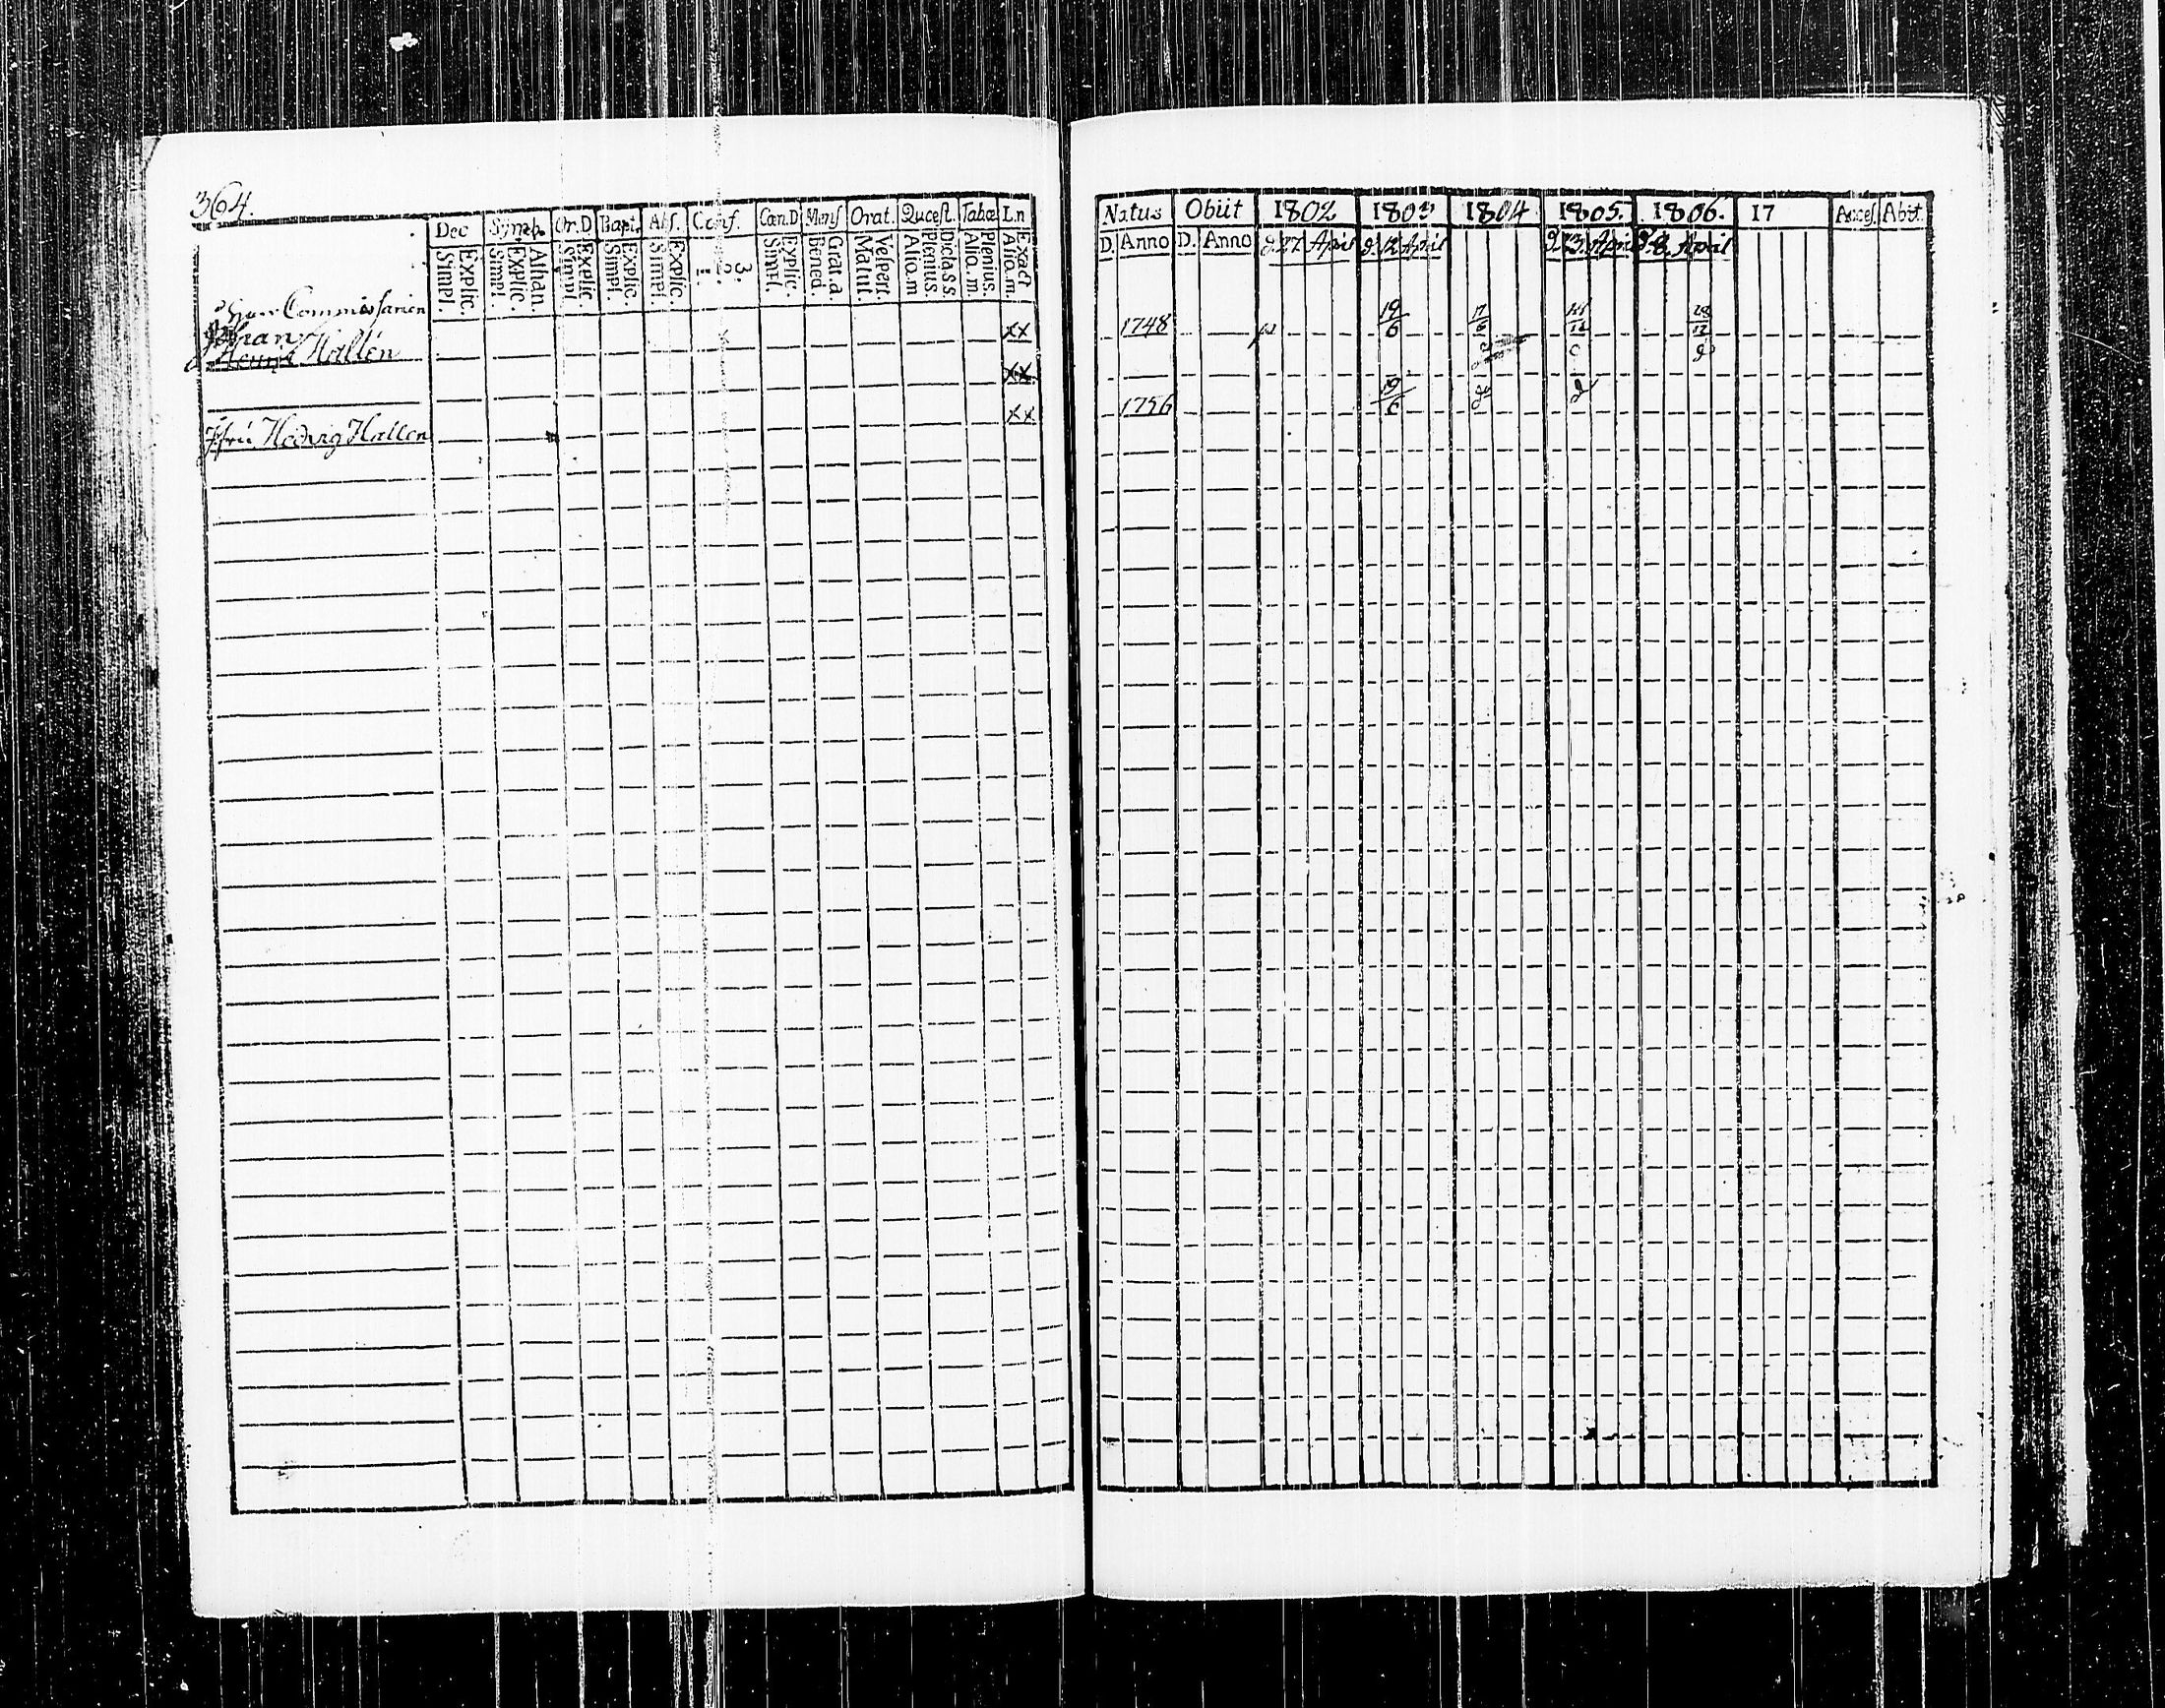 364.
Dec Symb. Or.D Bapt. Abs. Conf. Cœn.D Mens Orat. Quœst. Tabœ L.n
Explic. Simpl. Athan. Explic. Simpl. Explic. Simpl. Explic. Simpl. Explic. Simpl. 3. 2. 1. Explic. Simpl. Grat.a. Bened. Vespert. Matut. Plenius. Alio.m Plenius. Alio.m. Exact Alio.m.
Commissarien
Johan xx
Henric Hallén
xx
xx
Jfru Hedvig Hallen
Natus Obiit 1802 1803 1804 1805. 1806. 17 Acces. Abiit.
D. Anno D. Anno d. 27 April d. 12 April d. 23. April d. 8. April
1748 19/6 17/6 12 28/12
1756 19/6